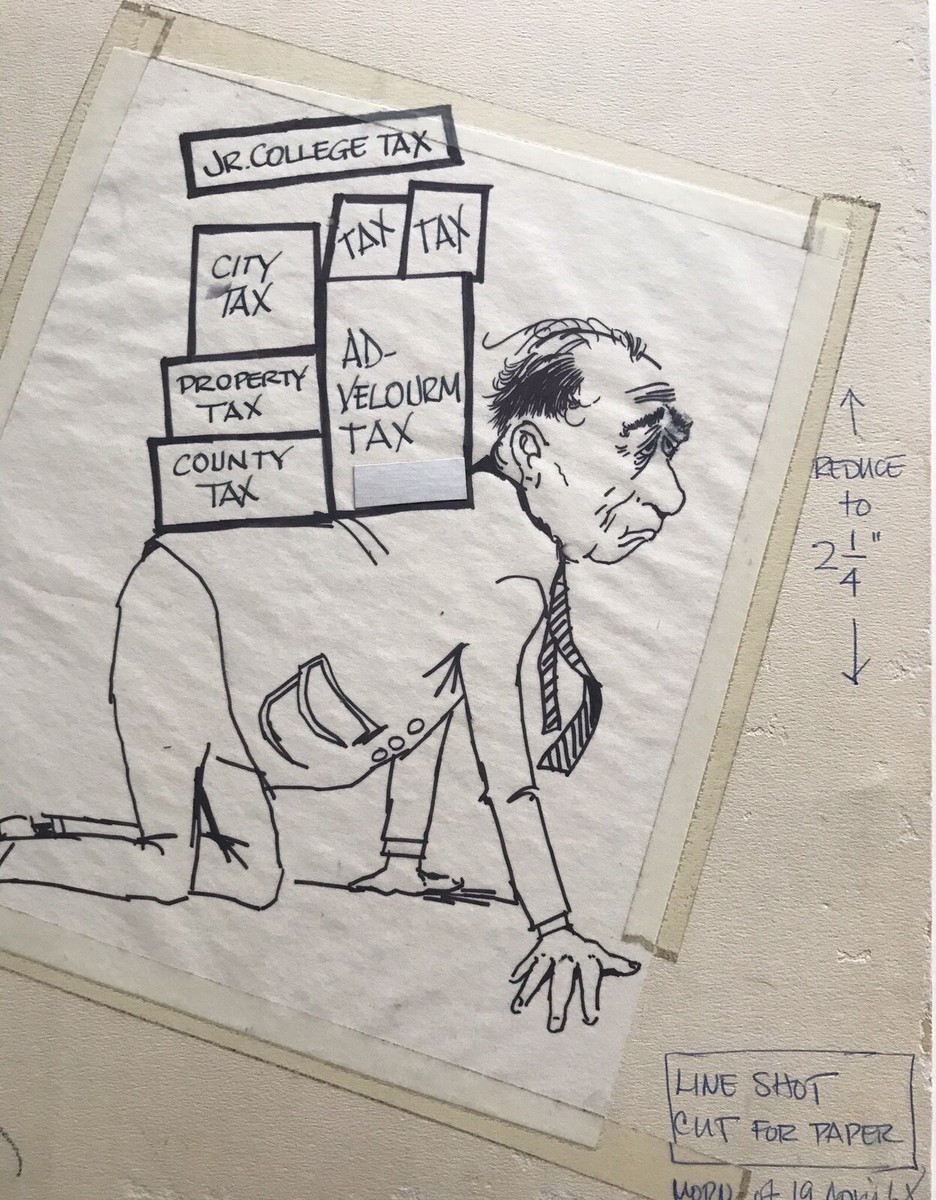 JR. COLLEGE TAX
TAX
TAX
CITY
TAX
PROPERTY
TAX
COUNTY
TAX
AD-
VELOURM
TAX
REDUCE
to
2 1/4"
LINE SHOT
CUT FOR PAPER
of 19